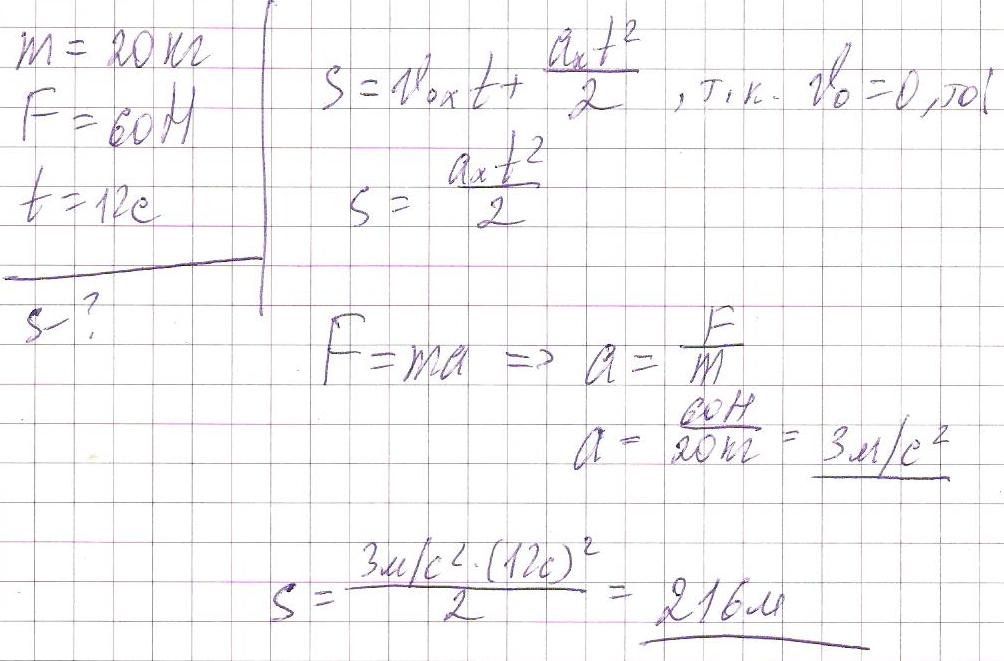 m = 20 кг
F = 60 Н
t = 12 с
s - ?
s = v₀ₓt + aₓt²/2 , т.к. v₀ = 0, то
s = aₓt²/2
F = ma => a = F/m
a = 60Н/20кг = 3м/с²
s = 3м/с² · (12с)²/2 = 216м